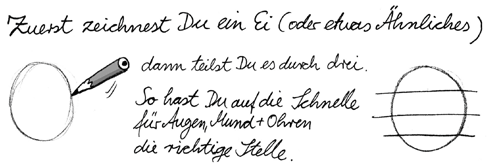 Zuerst zeichnest Du ein Ei (oder etwas Ähnliches)
dann teilst Du es durch drei.
So hast Du auf die Schnelle
für Augen, Mund + Ohren
die richtige Stelle.